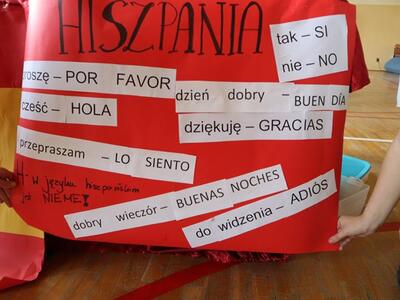 HISZPANIA
tak – SI
nie – NO
proszę – POR FAVOR
dzień dobry – BUEN DÍA
cześć – HOLA
dziękuję – GRACIAS
przepraszam – LO SIENTO
H - w języku hiszpańskim
jest NIEME!
dobry wieczór – BUENAS NOCHES
do widzenia – ADIÓS